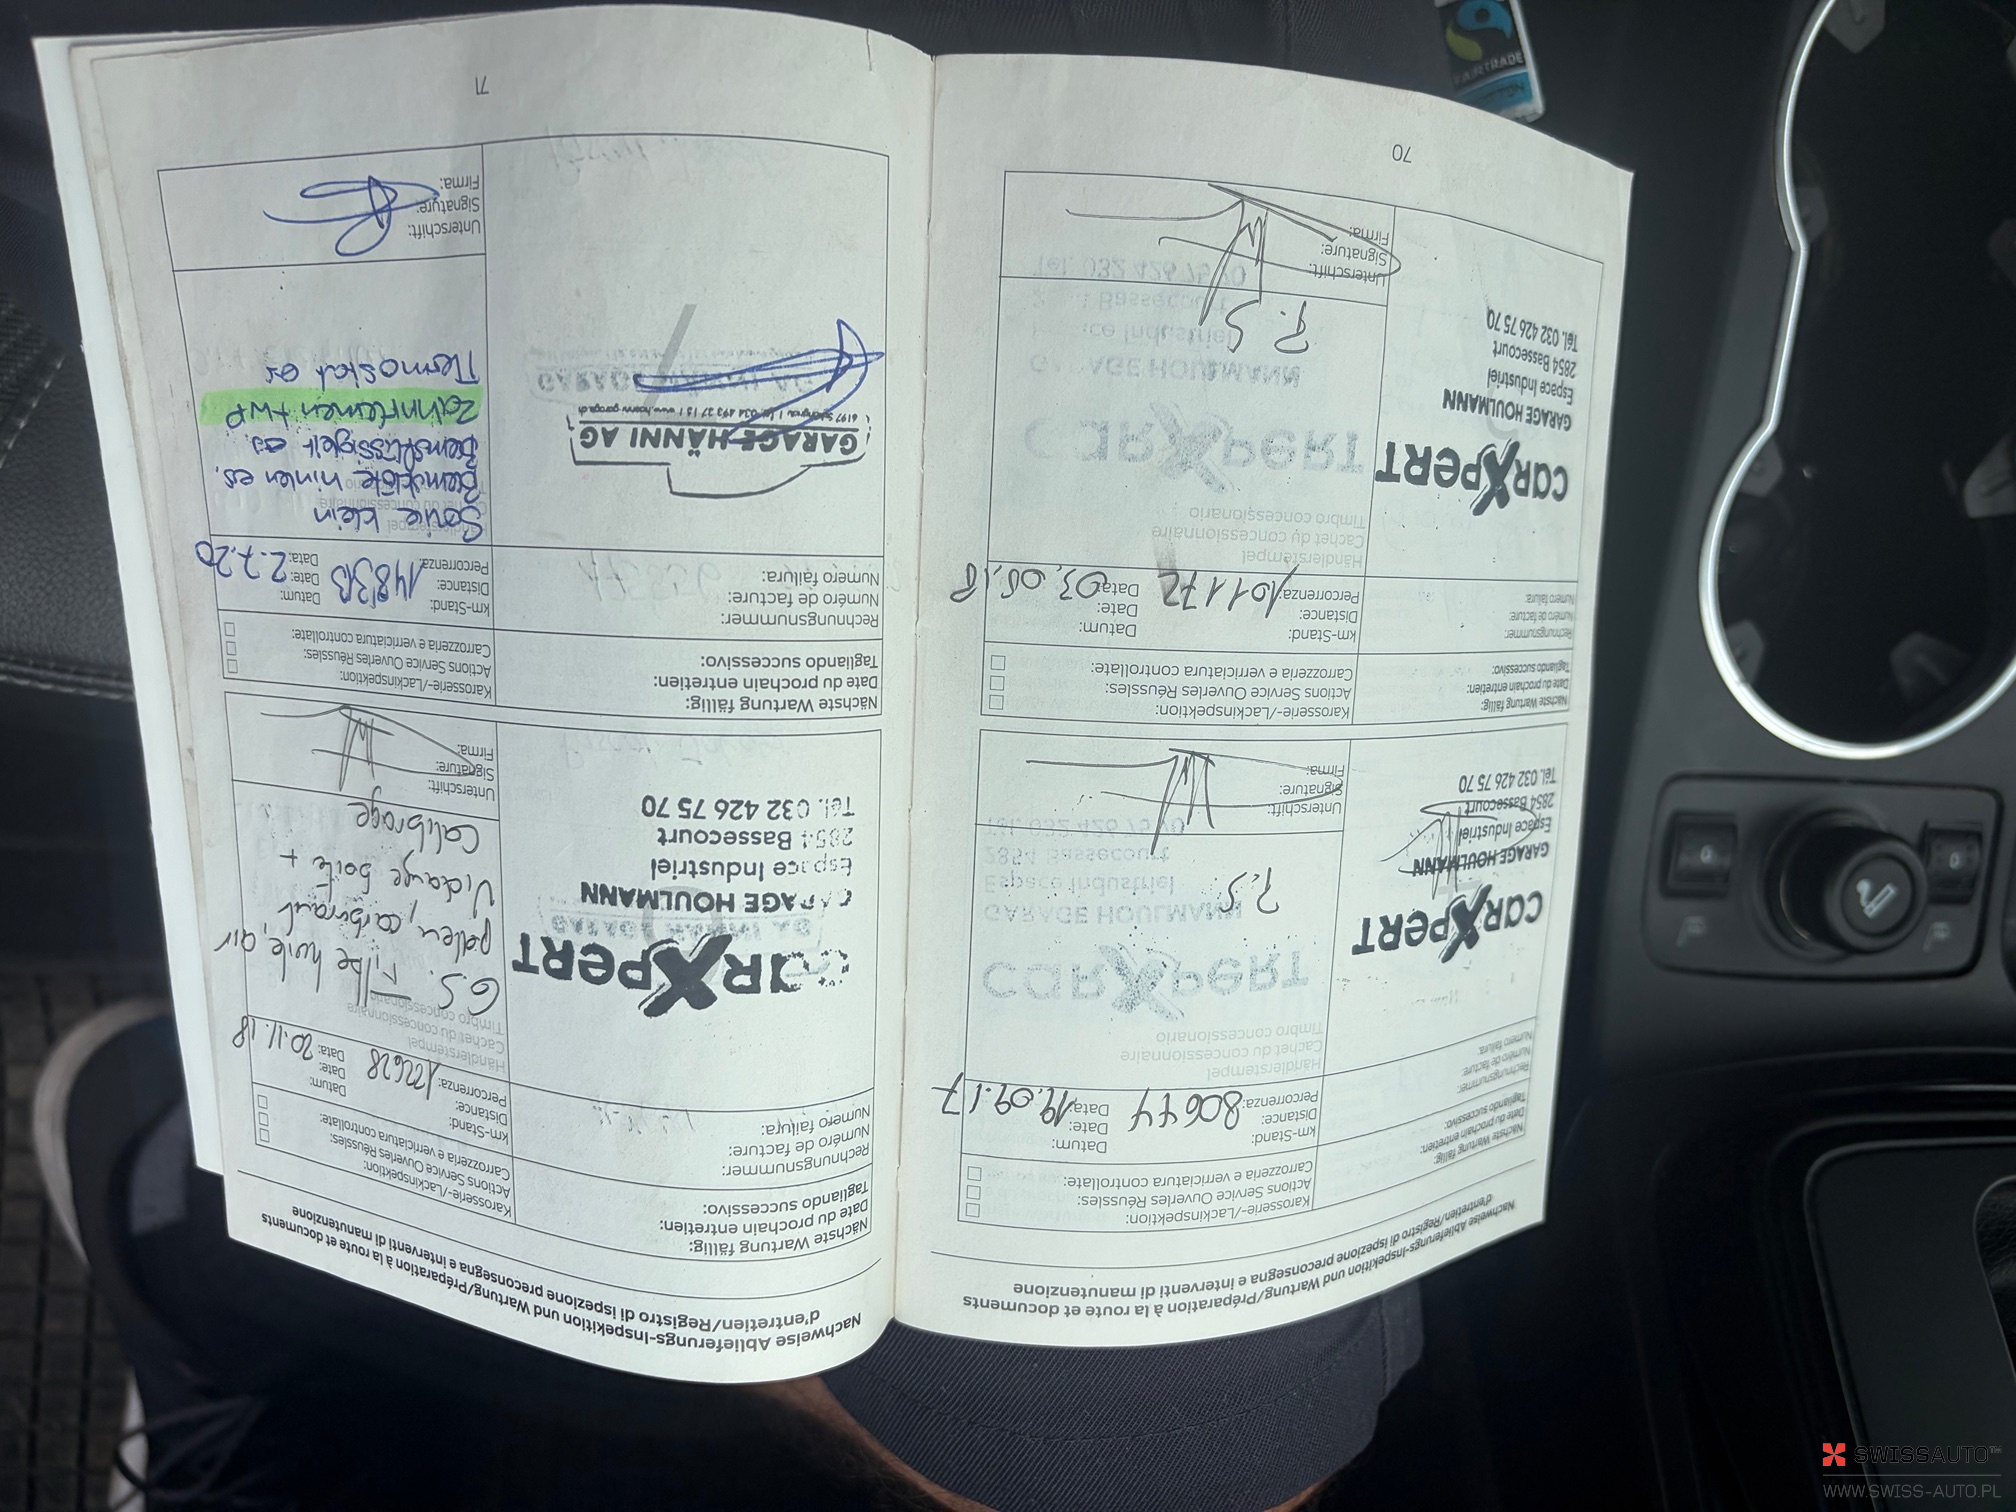 Nachweise Ablieferungs-Inspekition und Wartung/Préparation à la route et documents
d'entretien/Registro di ispezione preconsegna e interventi di manutenzione
Nächste Wartung fällig:
Date du prochain entretien:
Tagliando successivo:
Karosserie-/Lackinspektion:
Actions Service Ouvertes Réussles:
Carrozzeria e verriciatura controllate:
Rechnungsnummer:
Numéro de facture:
Numero failura:
km-Stand:
Distance:
Percorrenza:
80644
Datum:
Date:
Data:
19.09.17
Händlerstempel
Cachet du concessionnaire
Timbro concessionario
carXpert
GARAGE HOULMANN
Espace Industriel
2854 Bassecourt
Tél. 032 426 75 70
P.S
Unterschift:
Signature:
Firma:
Nächste Wartung fällig:
Date du prochain entretien:
Tagliando successivo:
Karosserie-/Lackinspektion:
Actions Service Ouvertes Réussles:
Carrozzeria e verriciatura controllate:
Rechnungsnummer:
Numéro de facture:
Numero failura:
km-Stand:
Distance:
Percorrenza:
101172
Datum:
Date:
Data:
03.05.18
Händlerstempel
Cachet du concessionnaire
Timbro concessionario
carXpert
GARAGE HOULMANN
Espace Industriel
2854 Bassecourt
Tél. 032 426 75 70
P.S
Unterschift:
Signature:
Firma:
70
Nachweise Ablieferungs-Inspekition und Wartung/Préparation à la route et documents
d'entretien/Registro di ispezione preconsegna e interventi di manutenzione
Nächste Wartung fällig:
Date du prochain entretien:
Tagliando successivo:
Karosserie-/Lackinspektion:
Actions Service Ouvertes Réussles:
Carrozzeria e verriciatura controllate:
Rechnungsnummer:
Numéro de facture:
Numero failura:
km-Stand:
Distance:
Percorrenza:
122628
Datum:
Date:
Data:
20.11.18
Händlerstempel
Cachet du concessionnaire
Timbro concessionario
carXpert
GARAGE HOULMANN
Espace Industriel
2854 Bassecourt
Tél. 032 426 75 70
G.S. Filtre huile, air
pollen, carburant
Vidange boite +
Calibrage
Unterschift:
Signature:
Firma:
Nächste Wartung fällig:
Date du prochain entretien:
Tagliando successivo:
Karosserie-/Lackinspektion:
Actions Service Ouvertes Réussles:
Carrozzeria e verriciatura controllate:
Rechnungsnummer:
Numéro de facture:
Numero failura:
km-Stand:
Distance:
Percorrenza:
Datum:
Date:
Data:
2.7.20
GARAGE HÄNNI AG
Servie klein
Bremsklötze hinten es.
Bremsflüssigkeit es
Zahnriemen + WP
Termostat es
Unterschift:
Signature:
Firma:
71
FAIRTRADE
SWISSAUTO
WWW.SWISS-AUTO.PL